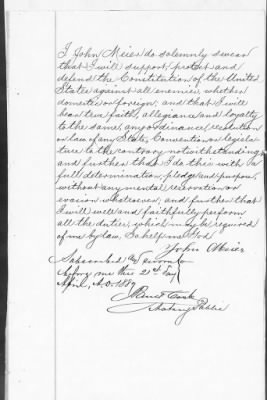 I John Meier do solemnly swear
that I will support, protect and
defend the Constitution of the United
States against all enemies, whether
domestic or foreign; and that I will
bear true faith, allegiance and loyalty
to the same, any ordinance, resolution
or law of any State, Convention or Legisla-
ture to the contrary notwithstanding
and further that I do this with a
full determination, pledge and purpose,
without any mental reservation or
evasion whatsoever; and further that
I will well and faithfully perform
all the duties, which may be required
of me by law, So help me God
John Meier
Subscribed & sworn to
before me this 21st day
April, A.D. 1869
Cook
Notary Public